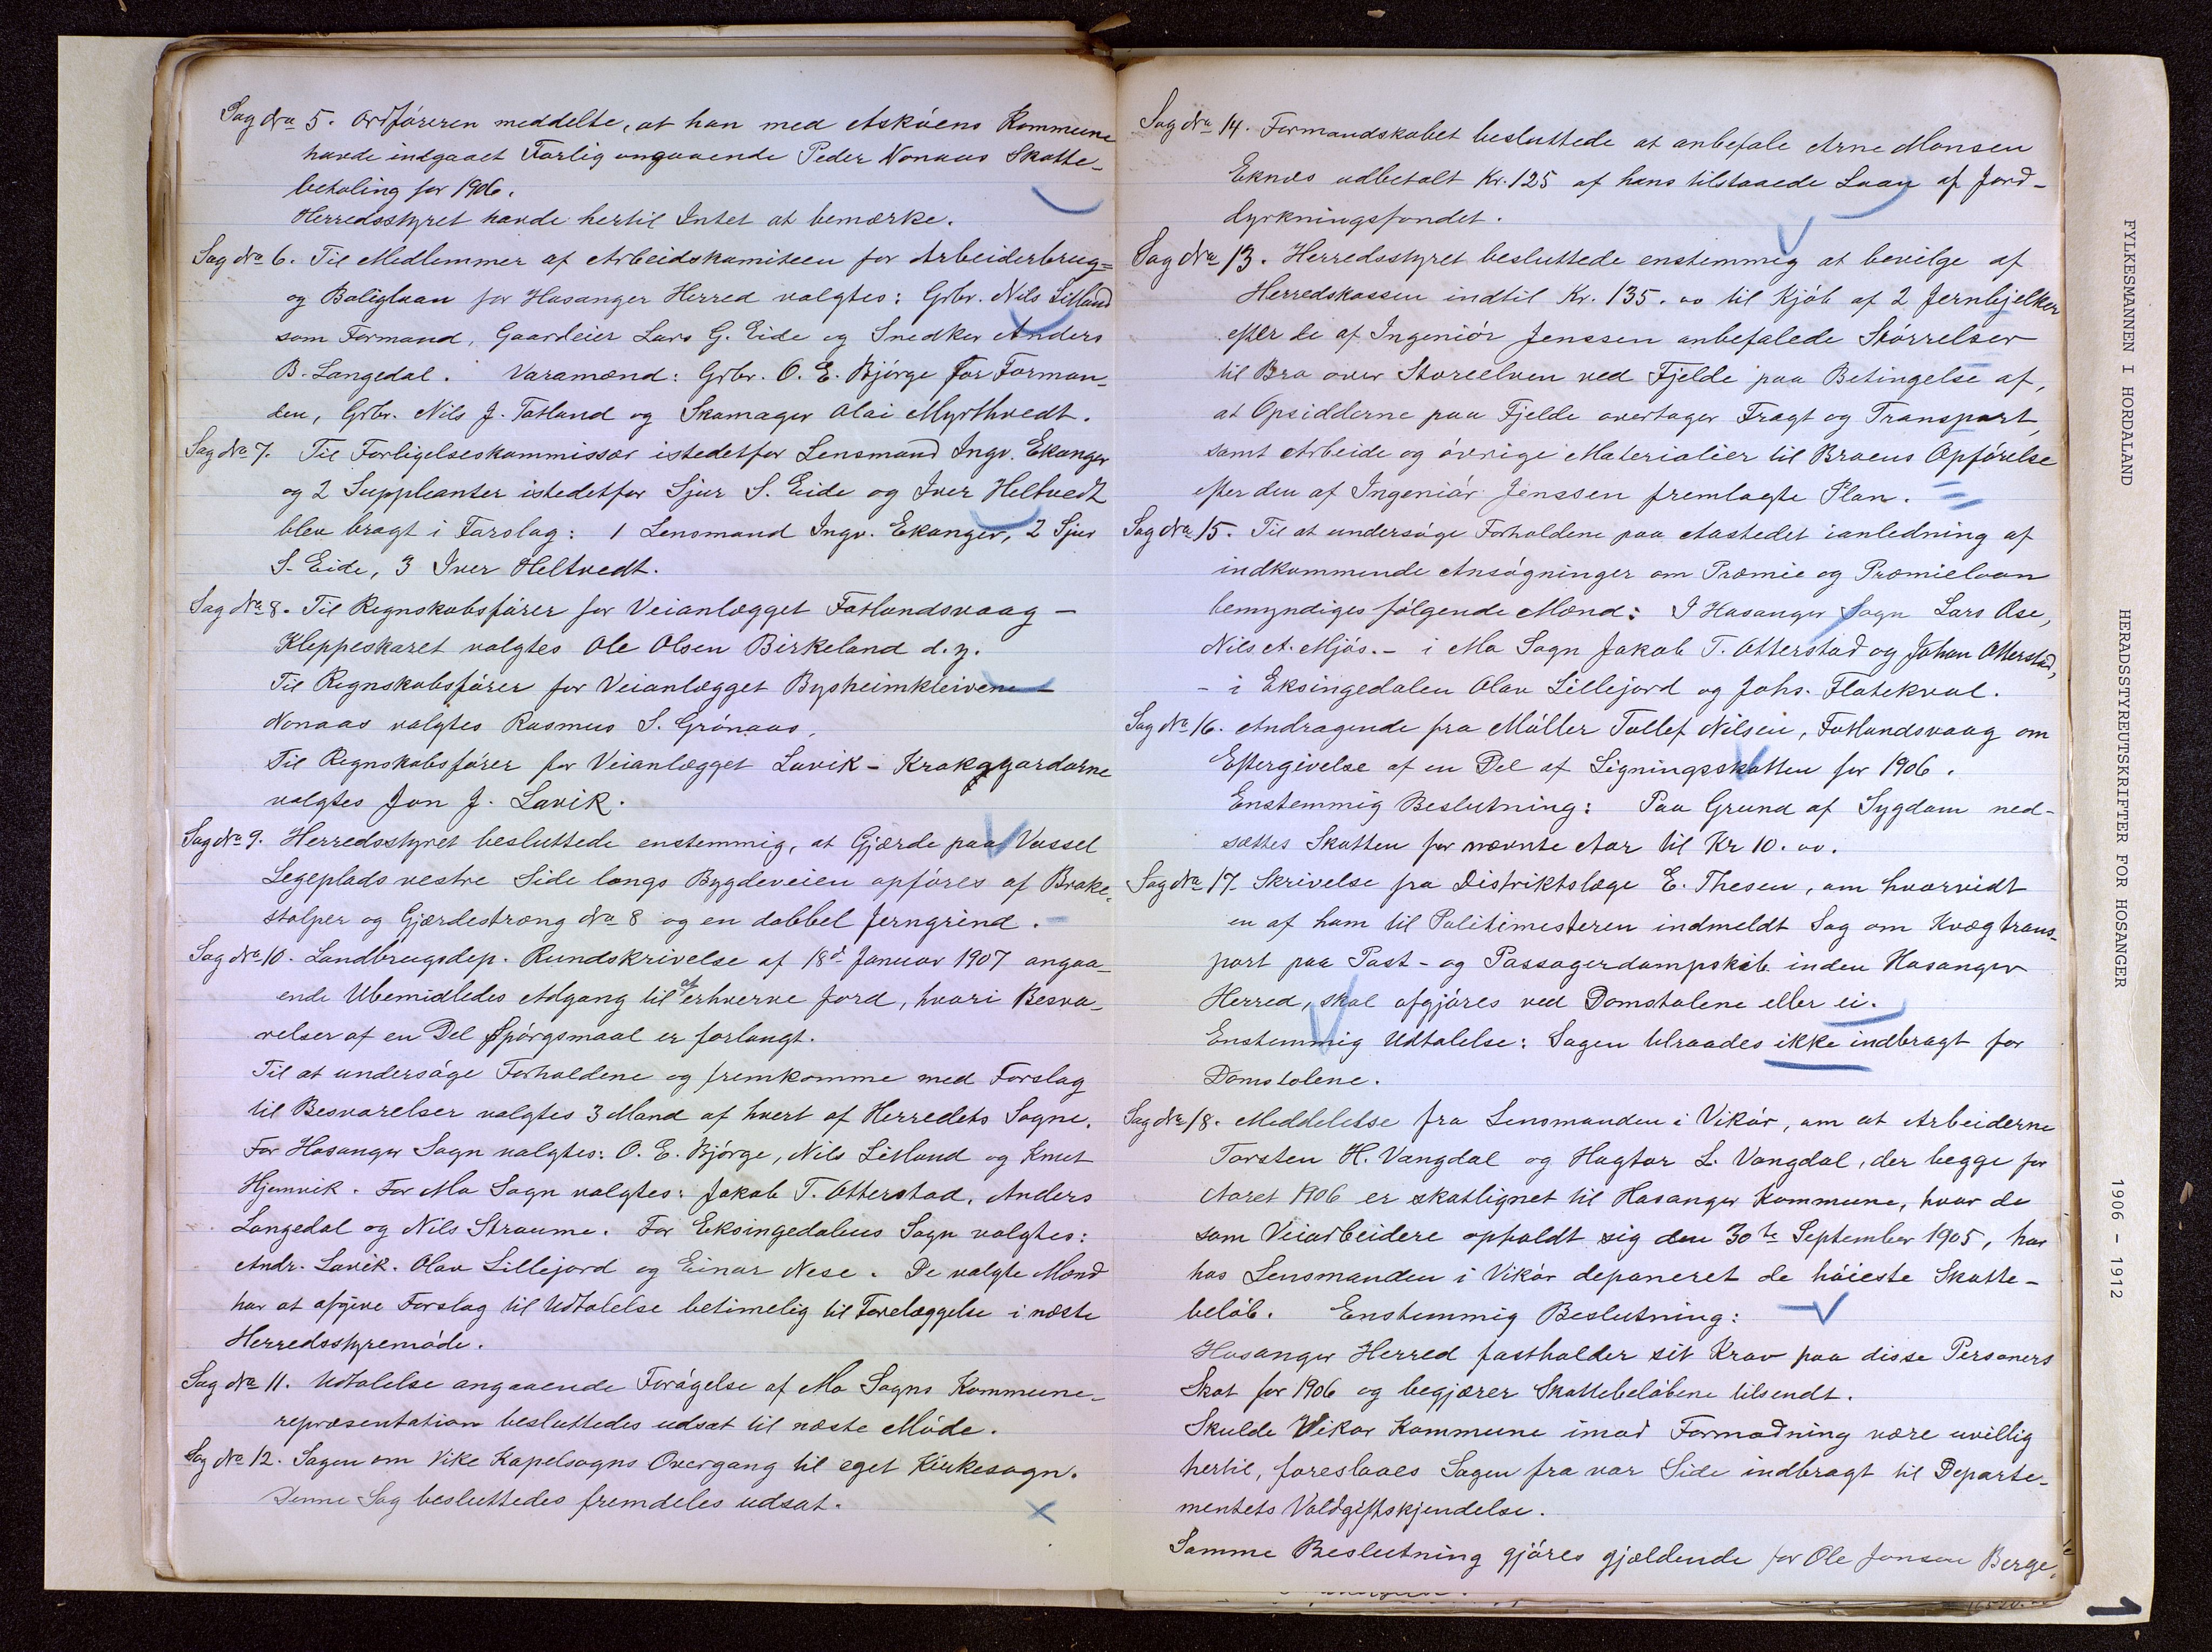 Sag No 5. Ordføreren meddelte, at han med Askøens Kommune
havde indgaaet Forlig angaaende Peder Nonaas Skatte-
betaling for 1906.
Herredsstyret havde hertil Intet at bemærke.
Sag No 6. Til Medlemmer af Arbeidskomiteen for Arbeiderbrug=
og Boliglaan for Hosanger Herred valgtes: Grbr. Nils Litland
som Formand, Gaardeier Lars G. Eide og Snedker Anders
B. Langedal. Varamænd: Grbr. O. E. Bjørge for Forman-
den, Grbr. Nils J. Totland og Skomager Olai Myrthvedt.
Sag No 7. Til Forligelseskommissær istedetfor Lensmand Ingv. Ekanger
og 2 Suppleanter istedetfor Sjur S. Eide og Iver Heltvedt
blev bragt i Forslag: 1 Lensmand Ingv. Ekanger, 2 Sjur
S. Eide, 3 Iver Heltvedt.
Sag No 8. Til Regnskabsfører for Veianlægget Fotlandsvaag -
Kleppeskaret valgtes Ole Olsen Birkeland d.y.
Til Regnskabsfører for Veianlægget Bysheimkleivene -
Nonaas valgtes Rasmus S. Grønaas.
Til Regnskabsfører for Veianlægget Lavik - Krakegaardarne
valgtes Jon J. Lavik.
Sag No 9. Herredsstyret besluttede enstemmig, at Gjærde paa Vassel
Legeplads vestre Side langs Bygdeveien opføres af Brake-
stolper og Gjærdestræng No 8 og en dobbel Jerngrind.
Sag No 10. Landbrugsdep. Rundskrivelse af 18d Januar 1907 angaa-
ende Ubemidledes Adgang til at erhverve Jord, hvori Besva-
relser af en Del Spørgsmaal er forlangt.
Til at undersøge Forholdene og fremkomme med Forslag
til Besvarelser valgtes 3 Mand af hvert af Herredets Sogne.
For Hosanger Sogn valgtes: O. E. Bjørge, Nils Litland og Knut
Hjemvik. For Mo Sogn valgtes: Jakob T. Otterstad, Anders
Langedal og Nils Straume. For Eksingedalens Sogn valgtes:
Andr. Lavik. Olav Lillejord og Einar Nese. De valgte Mænd
har at afgive Forslag til Udtalelse betimelig til Forelæggelse i næste
Herredsstyremøde.
Sag No 11. Udtalelse angaaende Forøgelse af Mo Sogns Kommune-
repræsentation besluttedes udsat til næste Møde.
Sag No 12. Sagen om Vike Kapelsogns Overgang til eget Kirkesogn.
Denne Sag besluttedes fremdeles udsat.
Sag No 14. Formandskabet besluttede at anbefale Arne Monsen
Eknes udbetalt Kr. 125 af hans tilstaaede Laan af Jord-
dyrkningsfondet.
Sag No 13. Herredsstyret besluttede enstemmig at bevilge af
Herredskassen indtil Kr. 135.00 til Kjøb af 2 Jernbjelker
efter de af Ingeniør Jenssen anbefalede Størrelser
til Bro over Storeelven ved Fjelde paa Betingelse af,
at Opsidderne paa Fjelde overtager Fragt og Transport,
samt Arbeide og øvrige Materialier til Broens Opførelse
efter den af Ingeniør Jenssen fremlagte Plan.
Sag No 15. Til at undersøge Forholdene paa Aastedet ianledning af
indkommende Ansøgninger om Præmie og Præmielaan
bemyndiges følgende Mænd: I Hosanger Sogn Lars Ose,
Nils A. Mjøs. - i Mo Sogn Jakob T. Otterstad og Johan Otterstad,
- i Eksingedalen Olav Lillejord og Johs. Flatekval.
Sag No 16. Andragende fra Møller Tollef Nilsen, Fotlandsvaag om
Eftergivelse af en Del af Ligningsskatten for 1906.
Enstemmig Beslutning: Paa Grund af Sygdom ned-
sættes Skatten for nævnte Aar til Kr 10.00.
Sag No 17. Skrivelse fra Distriktslæge E. Thesen, om hvorvidt
en af ham til Politimesteren indmeldt Sag om Kvægtrans-
port paa Post- og Passagerdampskib inden Hosanger
Herred, skal afgjøres ved Domstolene eller ei.
Enstemmig Udtalelse: Sagen tilraades ikke indbragt for
Domstolene.
Sag No 18. Meddelelse fra Lensmanden i Vikør, om at Arbeiderne
Torsten H. Vangdal og Hagtor L. Vangdal, der begge for
Aaret 1906 er skatlignet til Hosanger Kommune, hvor de
som Veiarbeidere opholdt sig den 30te September 1905, har
hos Lensmanden i Vikør deponeret de høieste Skatte-
beløb. Enstemmig Beslutning:
Hosanger Herred fastholder sit Krav paa disse Personers
Skat for 1906 og begjærer Skattebeløbene tilsendt.
Skulde Vikør Kommune imod Formodning være uvillig
hertil, foreslaaes Sagen fra vor Side indbragt til Departe-
mentets Voldgiftskjendelse.
Samme Beslutning gjøres gjældende for Ole Jonsen Berge.
FYLKESMANNEN I HORDALAND HERADSSTYREUTSKRIFTER FOR HOSANGER 1906 - 1912
1